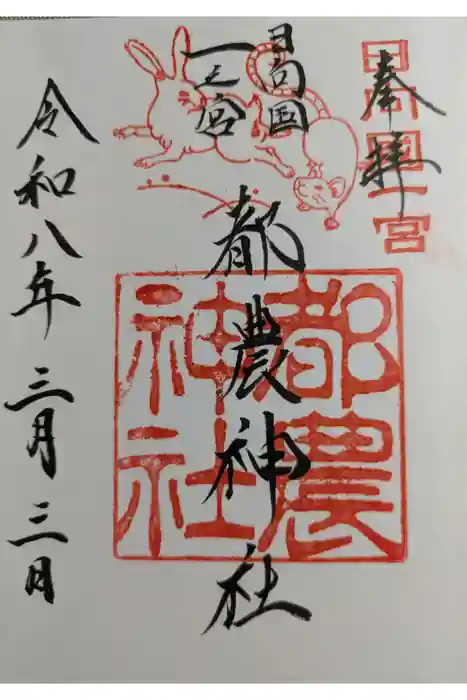 奉拝
日向国一宮
日向国
一之宮
都農神社
都農神社
令和八年三月三日